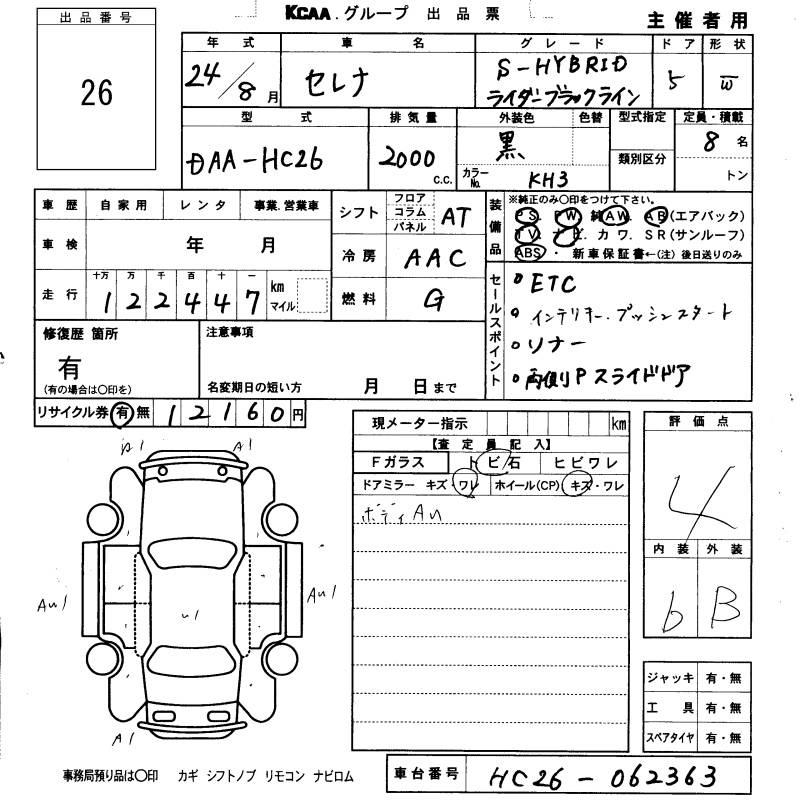 KCAA.グループ 出品票
主催者用
出品番号
26
年式 車名 グレード ドア 形状
24/8月 セレナ S-HYBRID ライダーブラックライン 5 W
型式 排気量 外装色 色替 型式指定 定員・積載
DAA-HC26 2000 c.c. 黒 カラーNo. KH3 類別区分 8名 トン
車歴 自家用 レンタ 事業.営業車
シフト フロア コラム パネル AT
装備品 ※純正のみ〇印をつけて下さい。
PS. PW 純AW. AB(エアバック)
TV. ナビ. カワ. SR(サンルーフ)
ABS・ 新車保証書←(注) 後日送りのみ
車検 年 月
冷房 AAC
走行 十万 万 千 百 十 一
122447 km マイル
燃料 G
セールスポイント
ETC
インテリキー.プッシュスタート
ソナー
両側Pスライドドア
修復歴 箇所
有
(有の場合は〇印を)
注意事項
名変期日の短い方 月 日まで
リサイクル券 有 無 12160円
現メーター指示 km
【査定員記入】
Fガラス トビ石 ヒビワレ
ドアミラー キズ・ワレ ホイール(CP) キズ・ワレ
ボディAU
評価点
4
内装 外装
b B
A1 A1
AU1 U1 AU1
A1
ジャッキ 有・無
工具 有・無
スペアタイヤ 有・無
事務局預り品は〇印 カギ シフトノブ リモコン ナビロム
車台番号 HC26-062363